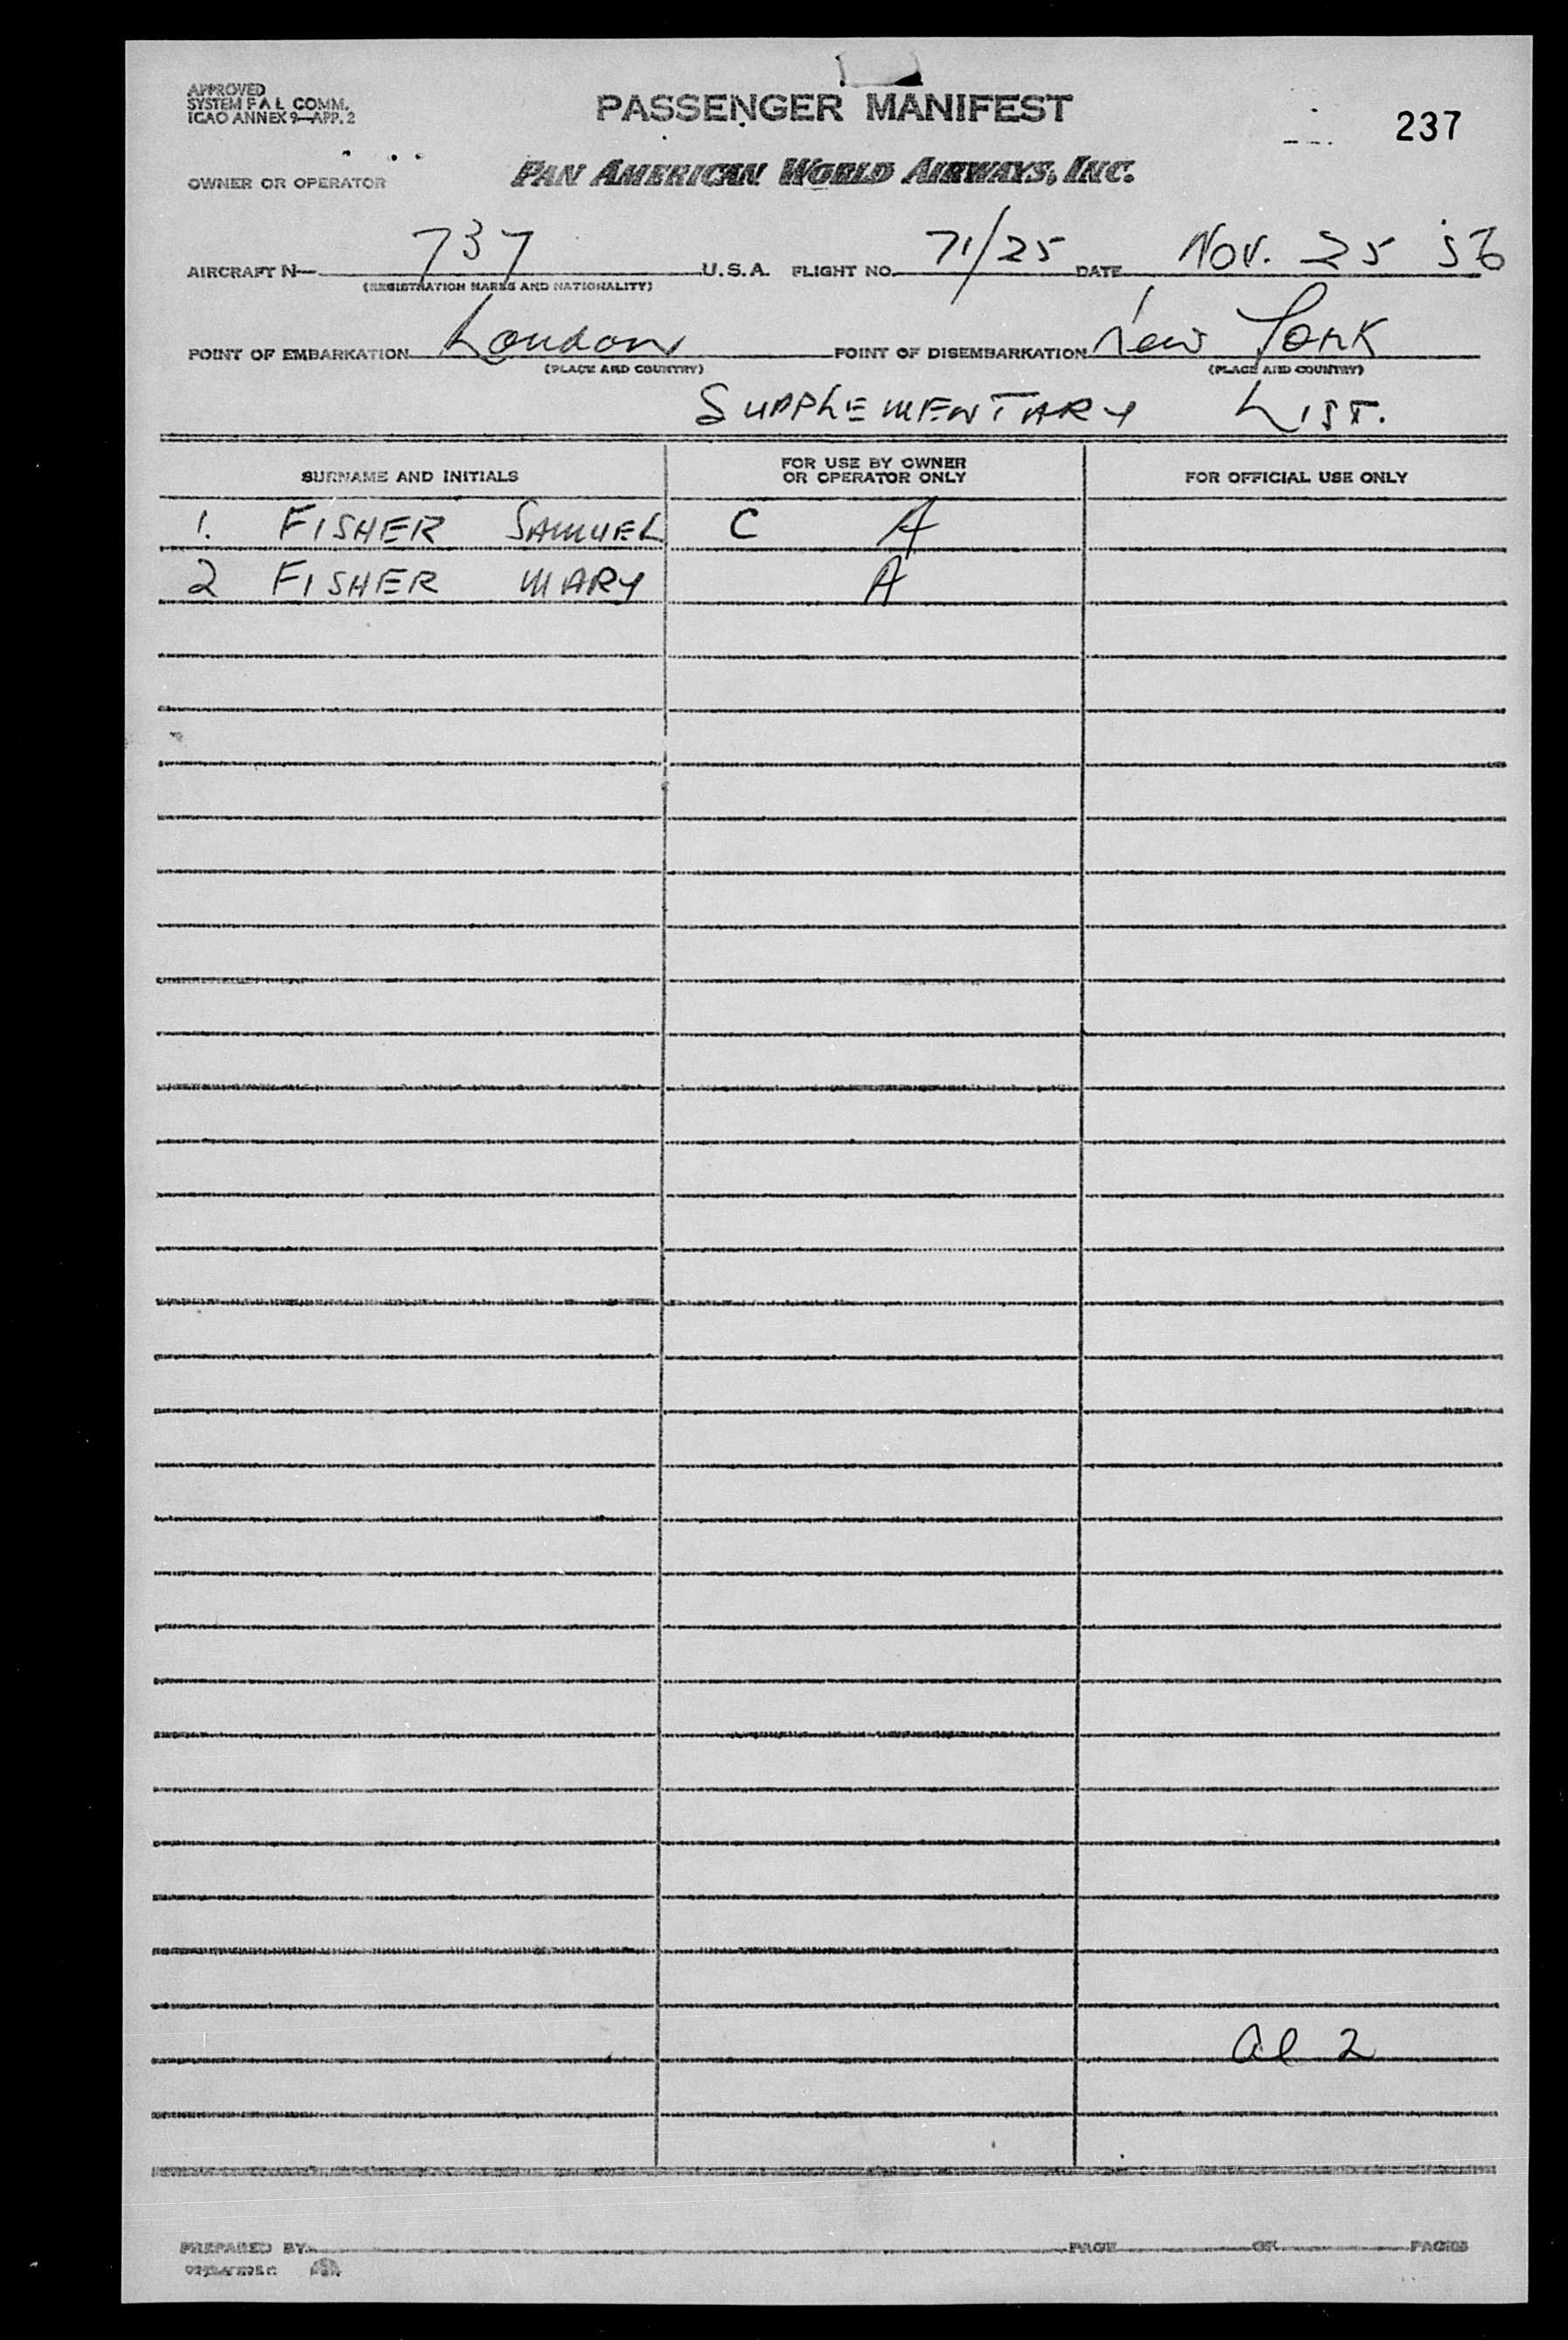 APPROVED
SYSTEM F A L COMM.
ICAO ANNEX 9—APP. 2
PASSENGER MANIFEST
237
OWNER OR OPERATOR
PAN AMERICAN WORLD AIRWAYS, INC.
AIRCRAFT N— 737 U.S.A. FLIGHT NO. 71/25 DATE Nov. 25 '56
(REGISTRATION MARKS AND NATIONALITY)
POINT OF EMBARKATION London POINT OF DISEMBARKATION New York
(PLACE AND COUNTRY) (PLACE AND COUNTRY)
SUPPLEMENTARY LIST.
SURNAME AND INITIALS FOR USE BY OWNER OR OPERATOR ONLY FOR OFFICIAL USE ONLY
1. FISHER SAMUEL C A
2 FISHER MARY A
al 2
PREPARED BY PAGE OF PAGES